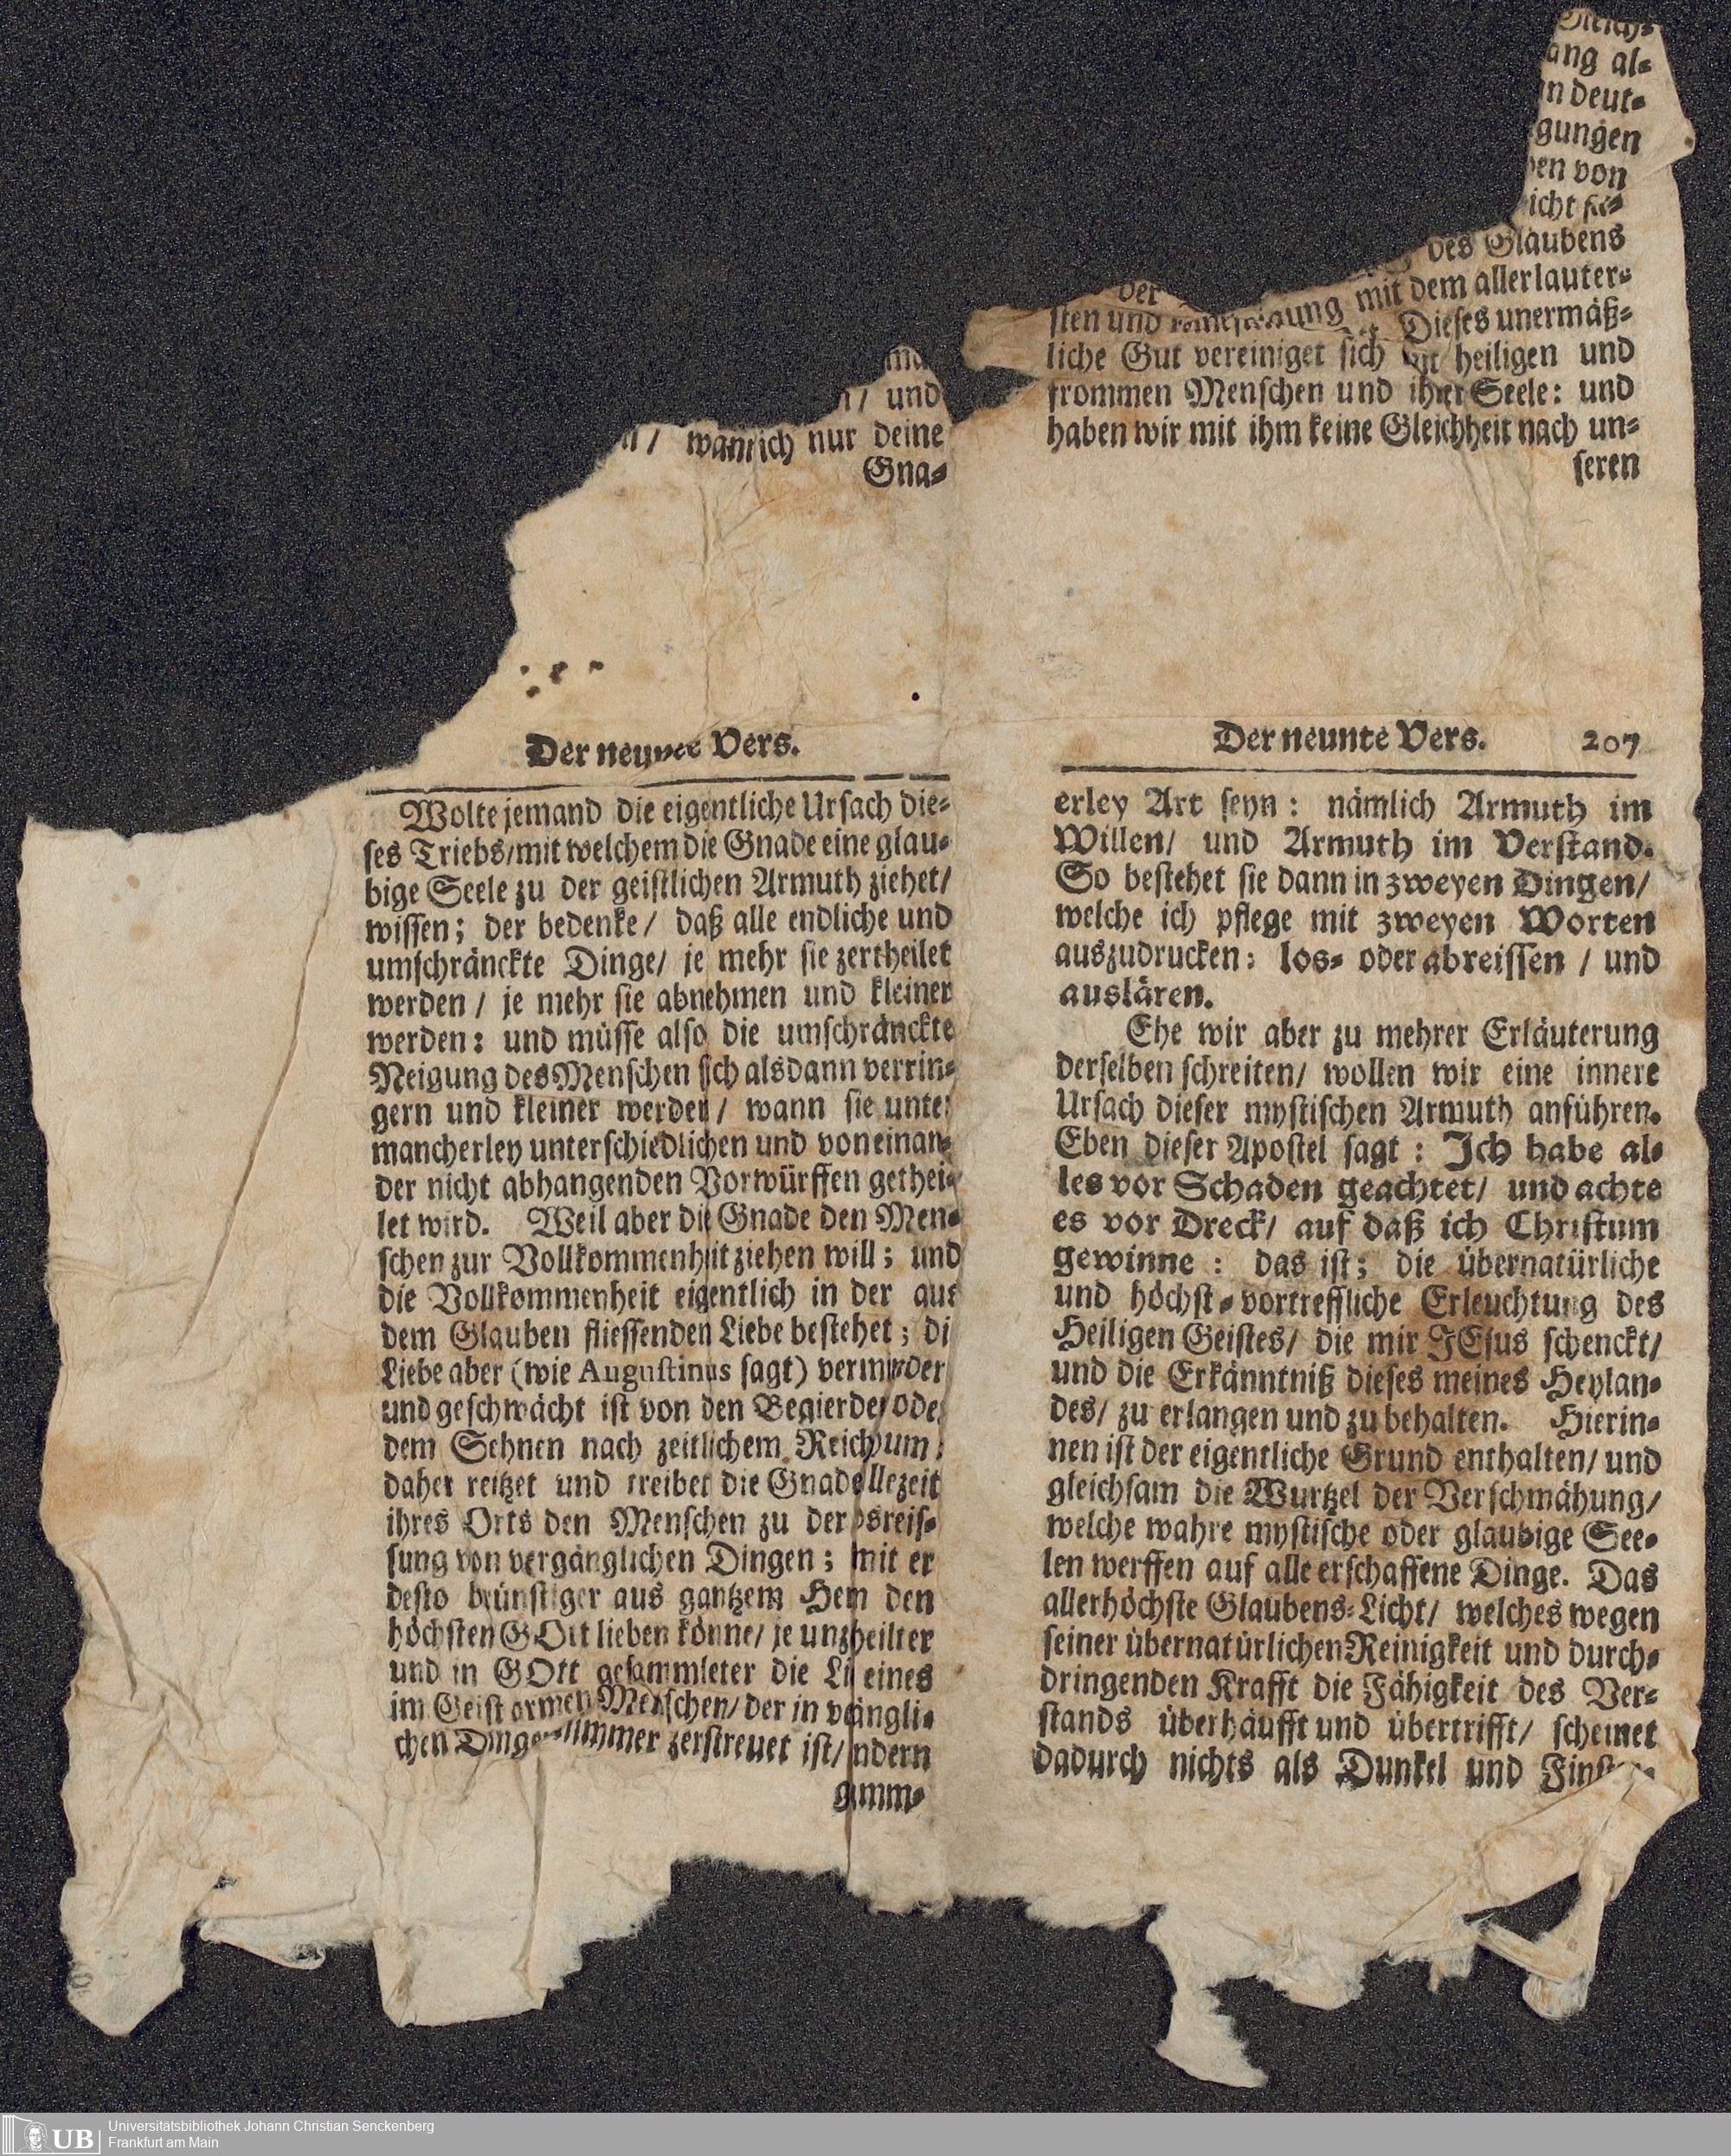 ang al⸗
n deut⸗
gungen
en von
icht
des Glaubens
der
mit dem allerlauter⸗
sten und
Dieses unermäß⸗
liche Gut vereiniget sich heiligen und
frommen Menschen und ihrer Seele: und
haben wir mit ihm keine Gleichheit nach un⸗
seren
/ und
/ nur deine
Gna⸗
Der Vers.
Wolte jemand die eigentliche Ursach die⸗
ses Triebs/mit welchem die Gnade eine glau⸗
bige Seele zu der geistlichen Armuth ziehet/
wissen; der bedenke/ daß alle endliche und
umschränckte Dinge/ je mehr sie zertheilet
werden / je mehr sie abnehmen und kleiner
werden: und müsse also die umschränckte
Neigung des Menschen sich alsdann verrin⸗
gern und kleiner werden/ wann sie unter
mancherley unterschiedlichen und von einan⸗
der nicht abhangenden Vorwürffen gethei⸗
let wird. Weil aber die Gnade den Men⸗
schen zur Vollkommenheit ziehen will; und
die Vollkommenheit eigentlich in der aus
dem Glauben fliessenden Liebe bestehet; di
Liebe aber (wie Augustinus sagt)
und geschwächt ist von den Begierde ode
dem Sehnen nach zeitlichem
daher reitzet und treibet die Gnad llezeit
ihres Orts den Menschen zu der osreis⸗
sung von vergänglichen Dingen; mit er
desto brünstiger aus gantzem He den
höchsten GOtt lieben könne/ je un heilter
und in GOtt gesammleter die Li eines
im Geist armen Menschen/ der in v ängli⸗
chen Dinge zerstreuet ist/ ndern
mm⸗
Der neunte Vers. 207
erley Art seyn: nämlich Armuth im
Willen/ und Armuth im Verstand.
So bestehet sie dann in zweyen Dingen/
welche ich pflege mit zweyen Worten
auszudrucken: los⸗ oder abreissen / und
auslären.
Ehe wir aber zu mehrer Erläuterung
derselben schreiten/ wollen wir eine innere
Ursach dieser mystischen Armuth anführen.
Eben dieser Apostel sagt: Ich habe al⸗
les vor Schaden geachtet/ und achte
es vor Dreck/ auf daß ich Christum
gewinne: das ist; die übernatürliche
und höchst⸗vortreffliche Erleuchtung des
Heiligen Geistes/ die mir JEsus schenckt/
und die Erkänntniß dieses meines Heylan⸗
des/ zu erlangen und zu behalten. Hierin⸗
nen ist der eigentliche Grund enthalten/ und
gleichsam die Wurtzel der Verschmähung/
welche wahre mystische oder glaubige See⸗
len werffen auf alle erschaffene Dinge. Das
allerhöchste Glaubens⸗Licht/ welches wegen
seiner übernatürlichen Reinigkeit und durch⸗
dringenden Krafft die Fähigkeit des Ver⸗
stands überhäufft und übertrifft/ scheinet
dadurch nichts als Dunkel und
UB
Universitätsbibliothek Johann Christian Senckenberg
Frankfurt am Main